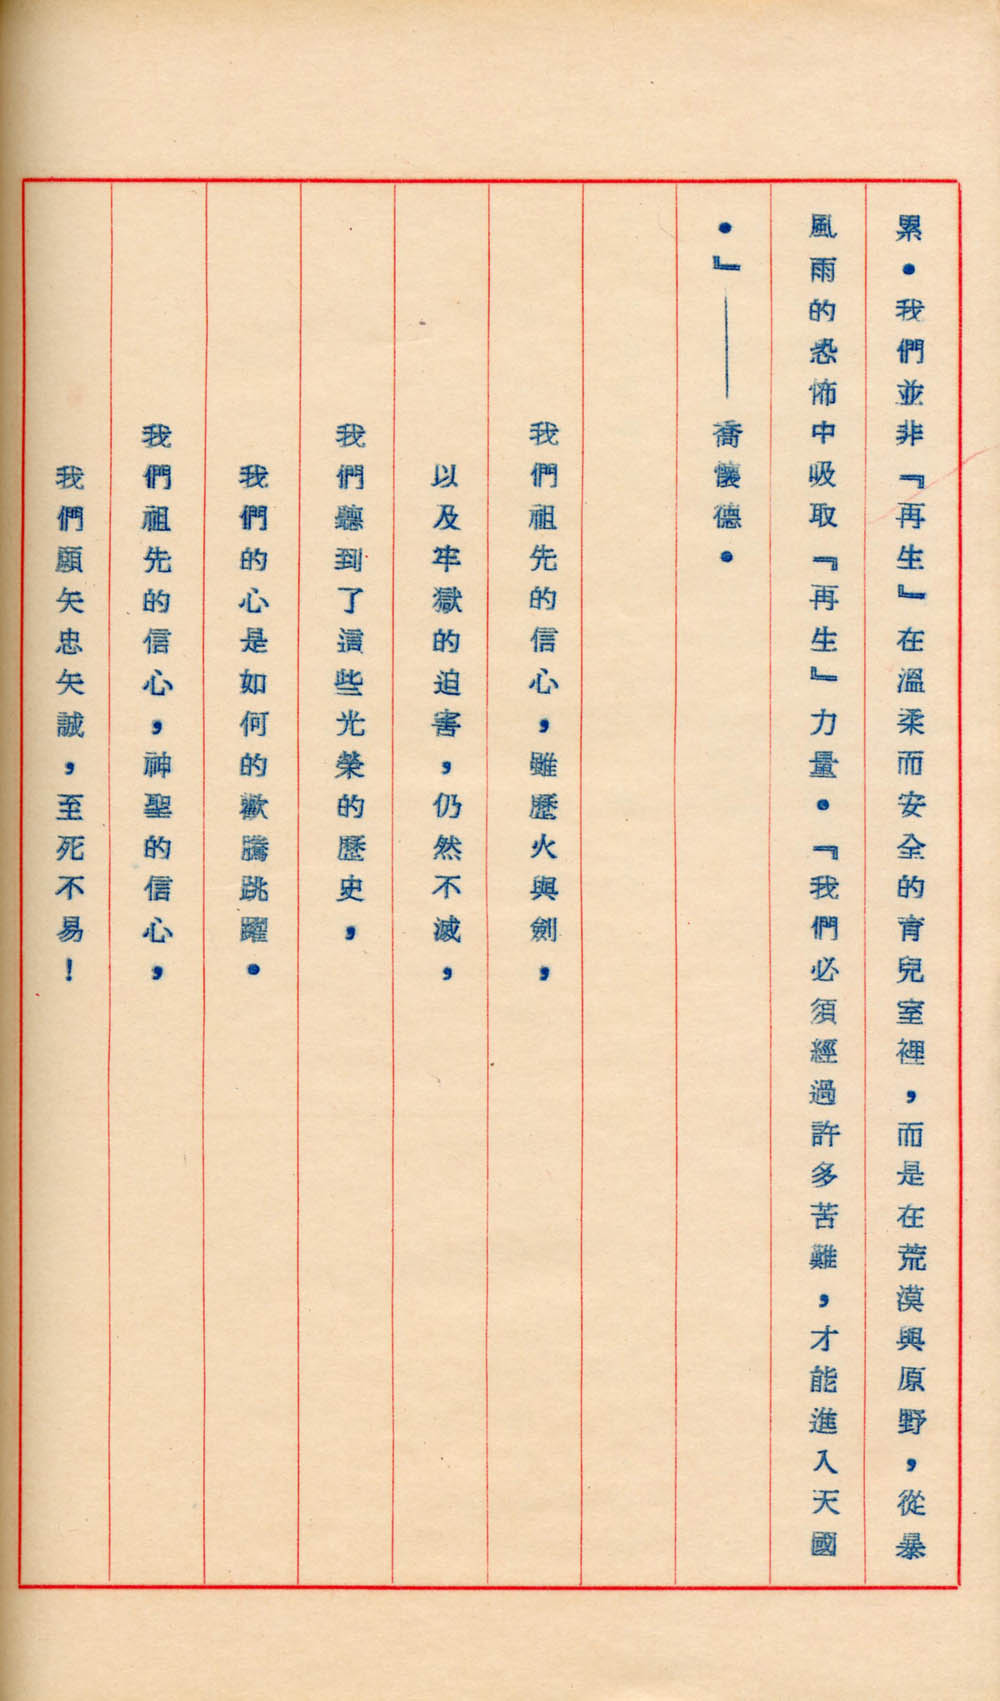 累．我們並非『再生』在溫柔而安全的育兒室裡，而是在荒漠與原野，從暴
風雨的恐怖中吸取『再生』力量．『我們必須經過許多苦難，才能進入天國
．』——喬懷德．
我們祖先的信心，雖歷火與劍，
以及牢獄的迫害，仍然不滅，
我們聽到了這些光榮的歷史，
我們的心是如何的歡騰跳躍．
我們祖先的信心，神聖的信心，
我們願矢忠矢誠，至死不易！